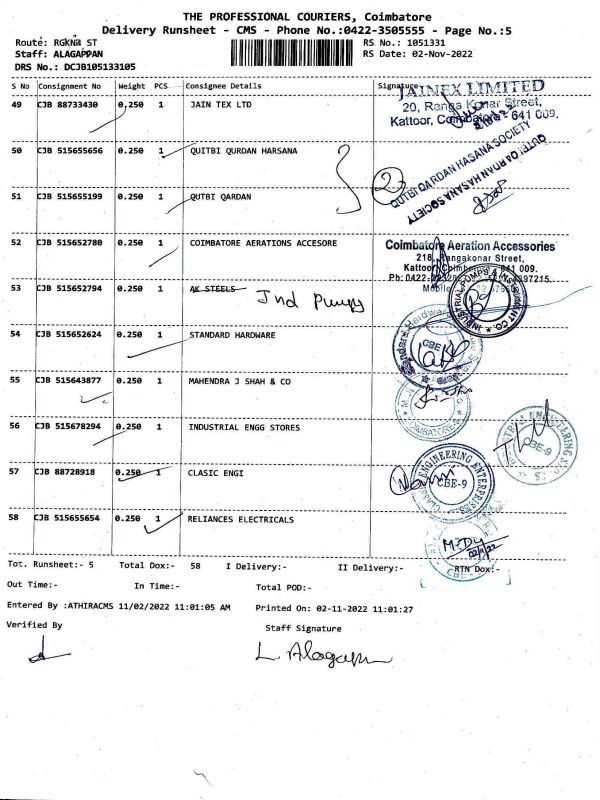 THE PROFESSIONAL COURIERS, Coimbatore
Delivery Runsheet - CMS - Phone No.:0422-3505555 - Page No.:5
Route: RGKNR ST
RS No.: 1051331
Staff: ALAGAPPAN
RS Date: 02-Nov-2022
DRS No.: DCJB105133105
S No Consignment No Weight PCS Consignee Details Signature
49 CJB 88733430 0.250 1 JAIN TEX LTD
JAINEX LIMITED
20, Ranga Konar Street,
Kattoor, Coimbatore - 641 009.
50 CJB 515655656 0.250 1 QUITBI QURDAN HARSANA
2
QUTBI QARDAN HASANA SOCIETY
QUTBI QARDAN HASANA SOCIETY
51 CJB 515655199 0.250 1 QUTBI QARDAN
52 CJB 515652780 0.250 1 COIMBATORE AERATIONS ACCESORE
Coimbatore Aeration Accessories
218, Rangakonar Street,
Kattoor, Coimbatore - 641 009.
Ph: 0422-2232 8997215
Mobile
53 CJB 515652794 0.250 1 AK STEELS
Ind Pumps
INDUSTRIAL PUMPS & INSTRUMENT CO.
54 CJB 515652624 0.250 1 STANDARD HARDWARE
Standard Hardware
CBE
55 CJB 515643877 0.250 1 MAHENDRA J SHAH & CO
COIMBATORE
56 CJB 515678294 0.250 1 INDUSTRIAL ENGG STORES
INDUSTRIAL ENGINEERING
CBE-9
57 CJB 88728918 0.250 1 CLASIC ENGI
CLASSIC ENGINEERING ENTERPRISES
CBE-9
58 CJB 515655654 0.250 1 RELIANCES ELECTRICALS
02/11/22
CBE
Tot. Runsheet:- 5 Total Dox:- 58 I Delivery:- II Delivery:- RTN Dox:-
Out Time:- In Time:- Total POD:-
Entered By :ATHIRACMS 11/02/2022 11:01:05 AM Printed On: 02-11-2022 11:01:27
Verified By Staff Signature
L. Alagappan